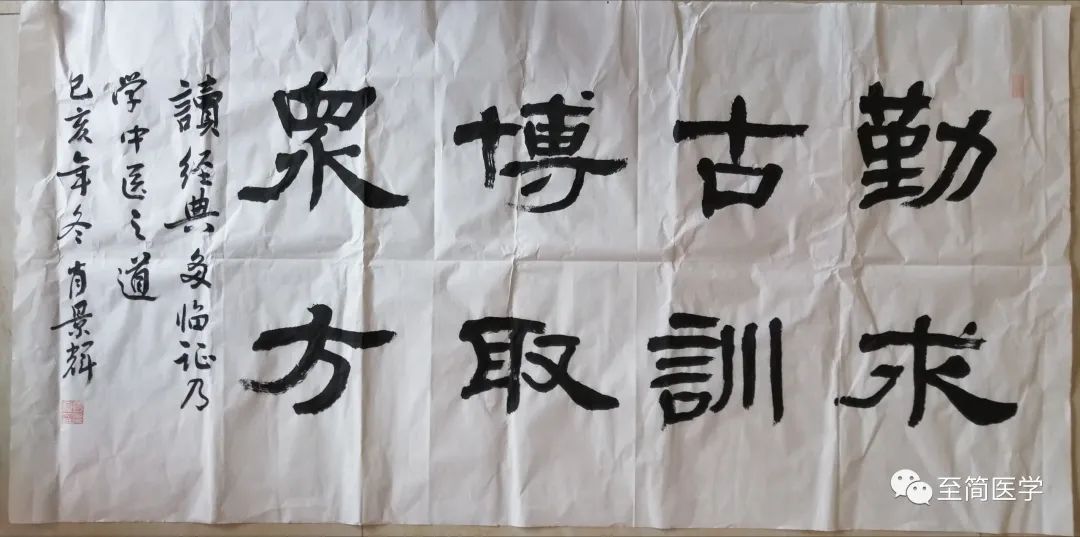 勤求
古訓
博取
眾方
讀经典多临证乃
学中医之道
己亥年冬肖景辉
至简医学